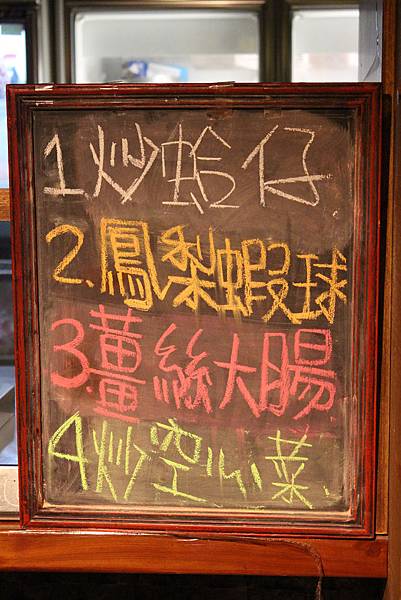 1.炒蛤仔
2.鳳梨蝦球
3.薑絲大腸
4炒空心菜